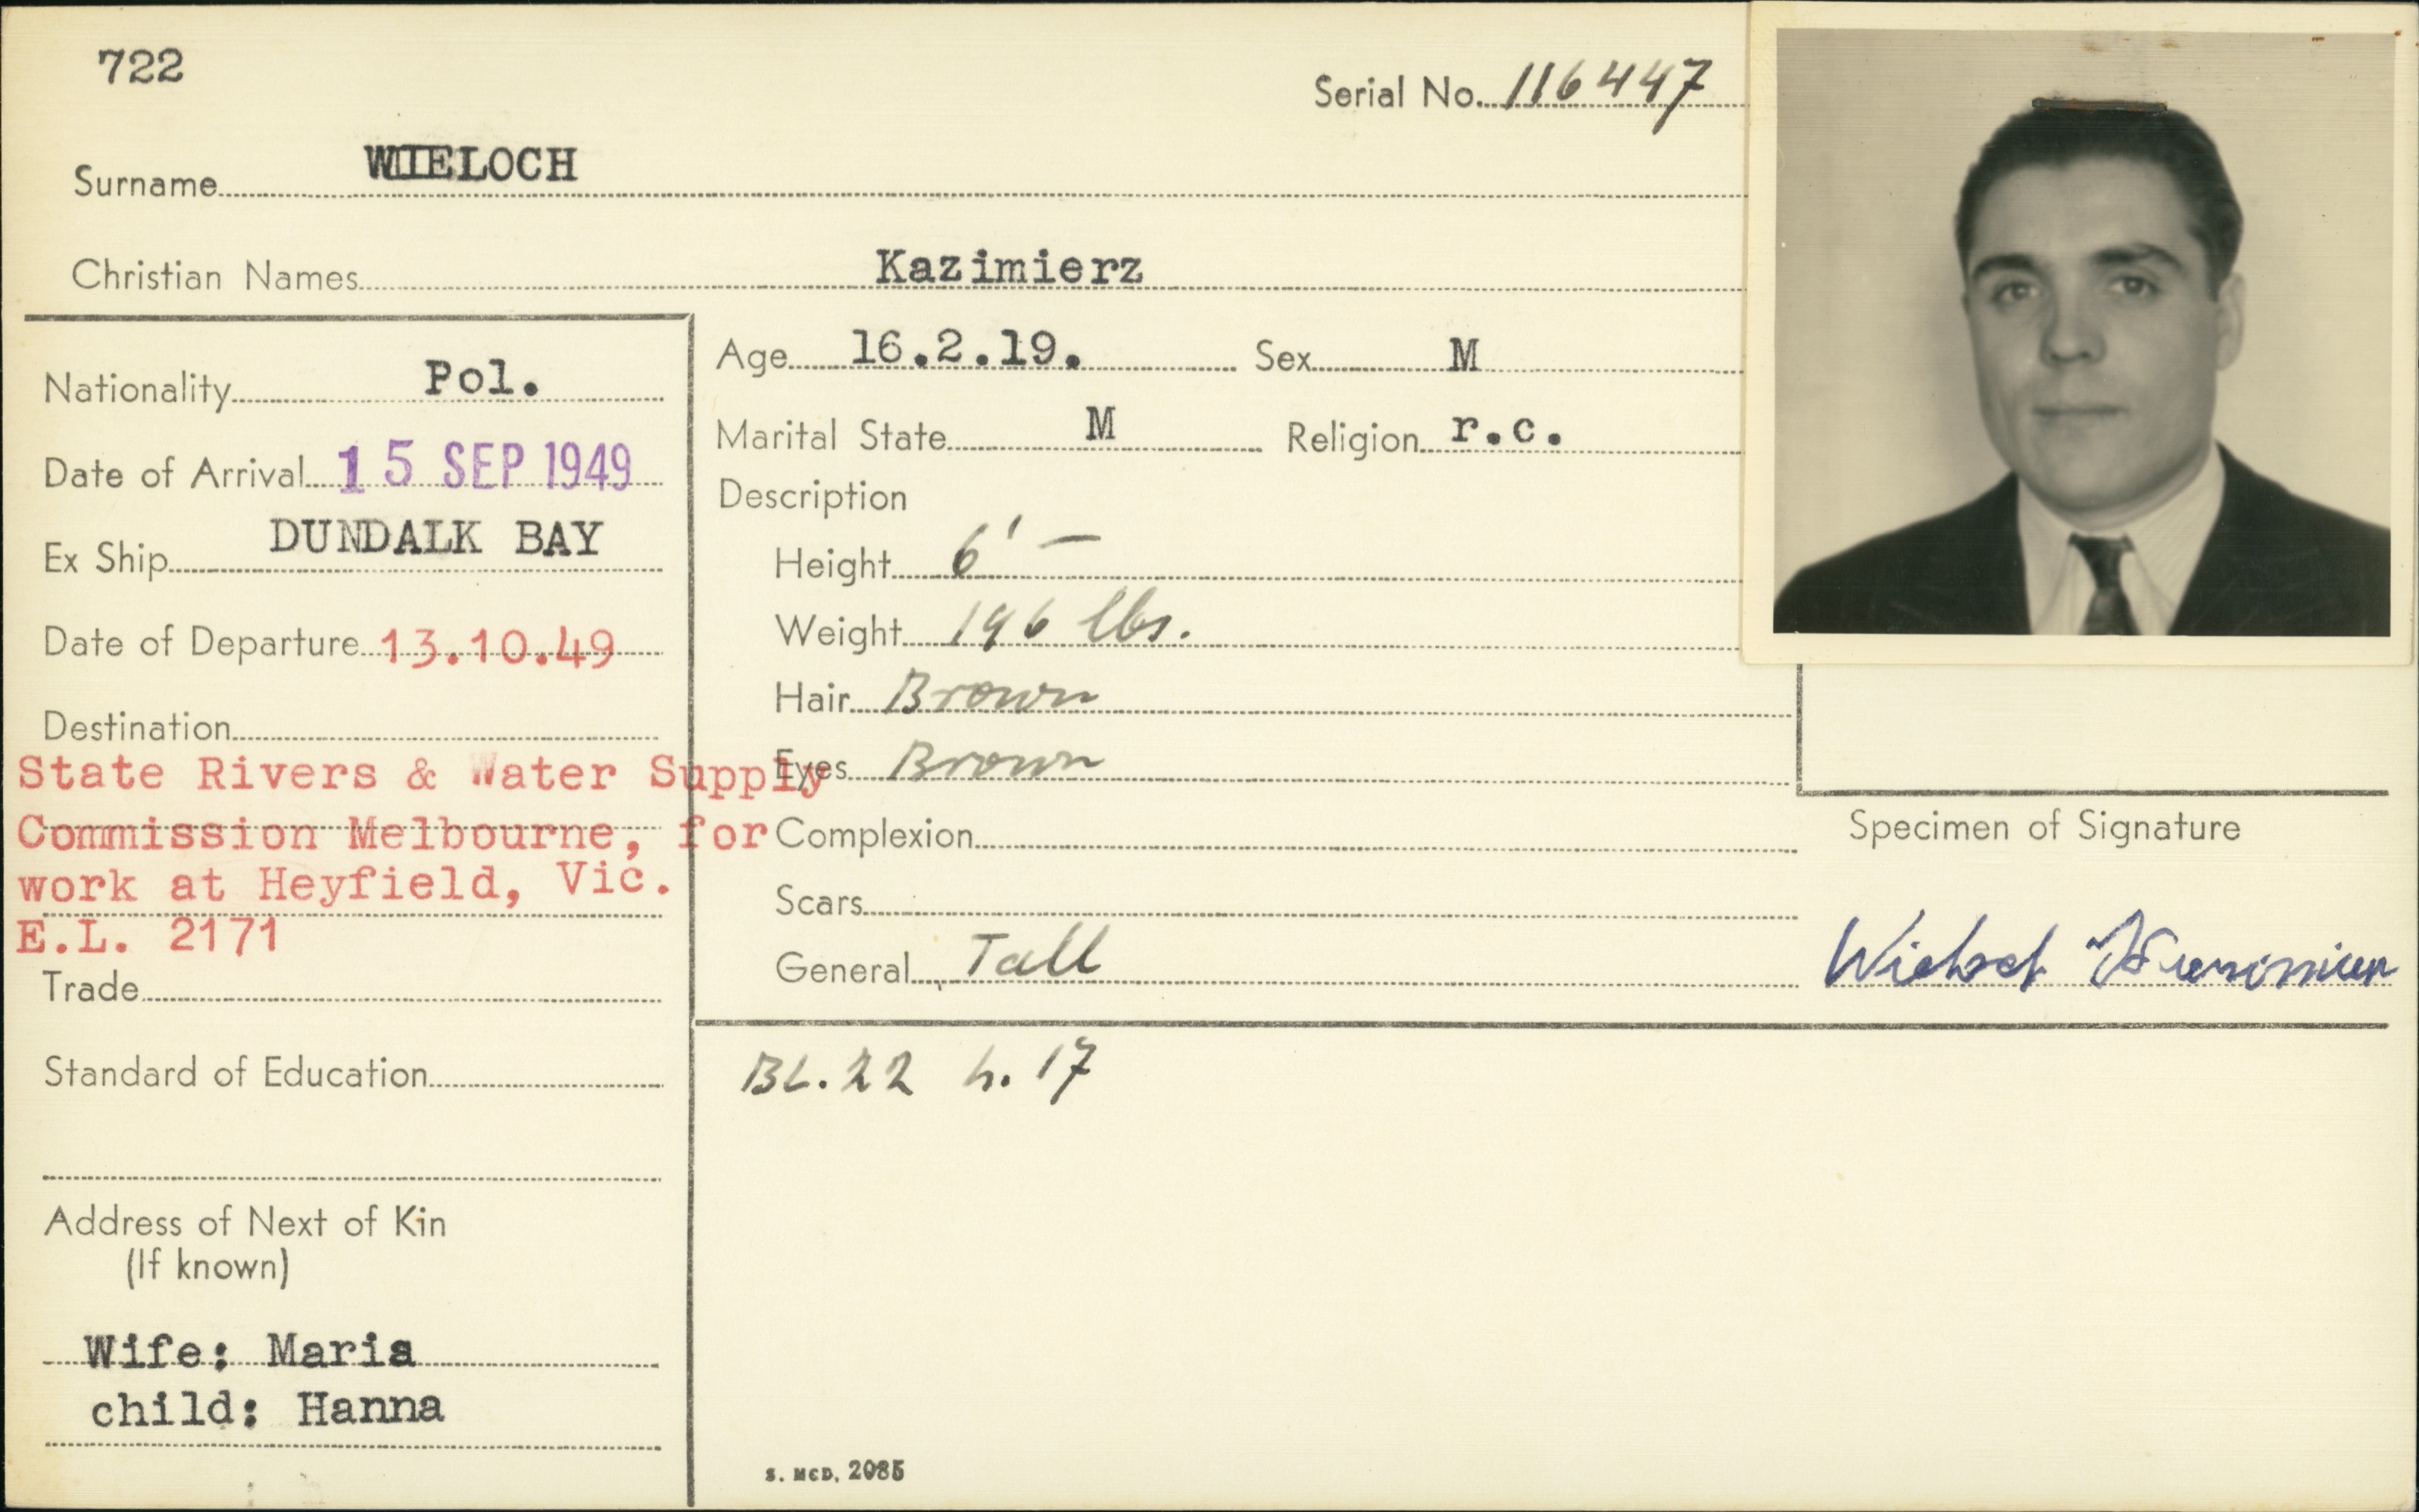 722
Serial No. 116447
Surname WIELOCH
Christian Names Kazimierz
Nationality Pol.
Date of Arrival 15 SEP 1949
Ex Ship DUNDALK BAY
Date of Departure 13.10.49
Destination
State Rivers & Water Supply
Commission Melbourne, for
work at Heyfield, Vic.
E.L. 2171
Trade
Standard of Education
Address of Next of Kin
(If known)
Wife: Maria
child: Hanna
Age 16.2.19. Sex M
Marital State M Religion r.c.
Description
Height 6' —
Weight 196 lbs.
Hair Brown
Eyes Brown
Complexion
Scars
General Tall
Specimen of Signature
Wieloch
BL. 22 h. 17
S. McD. 2085